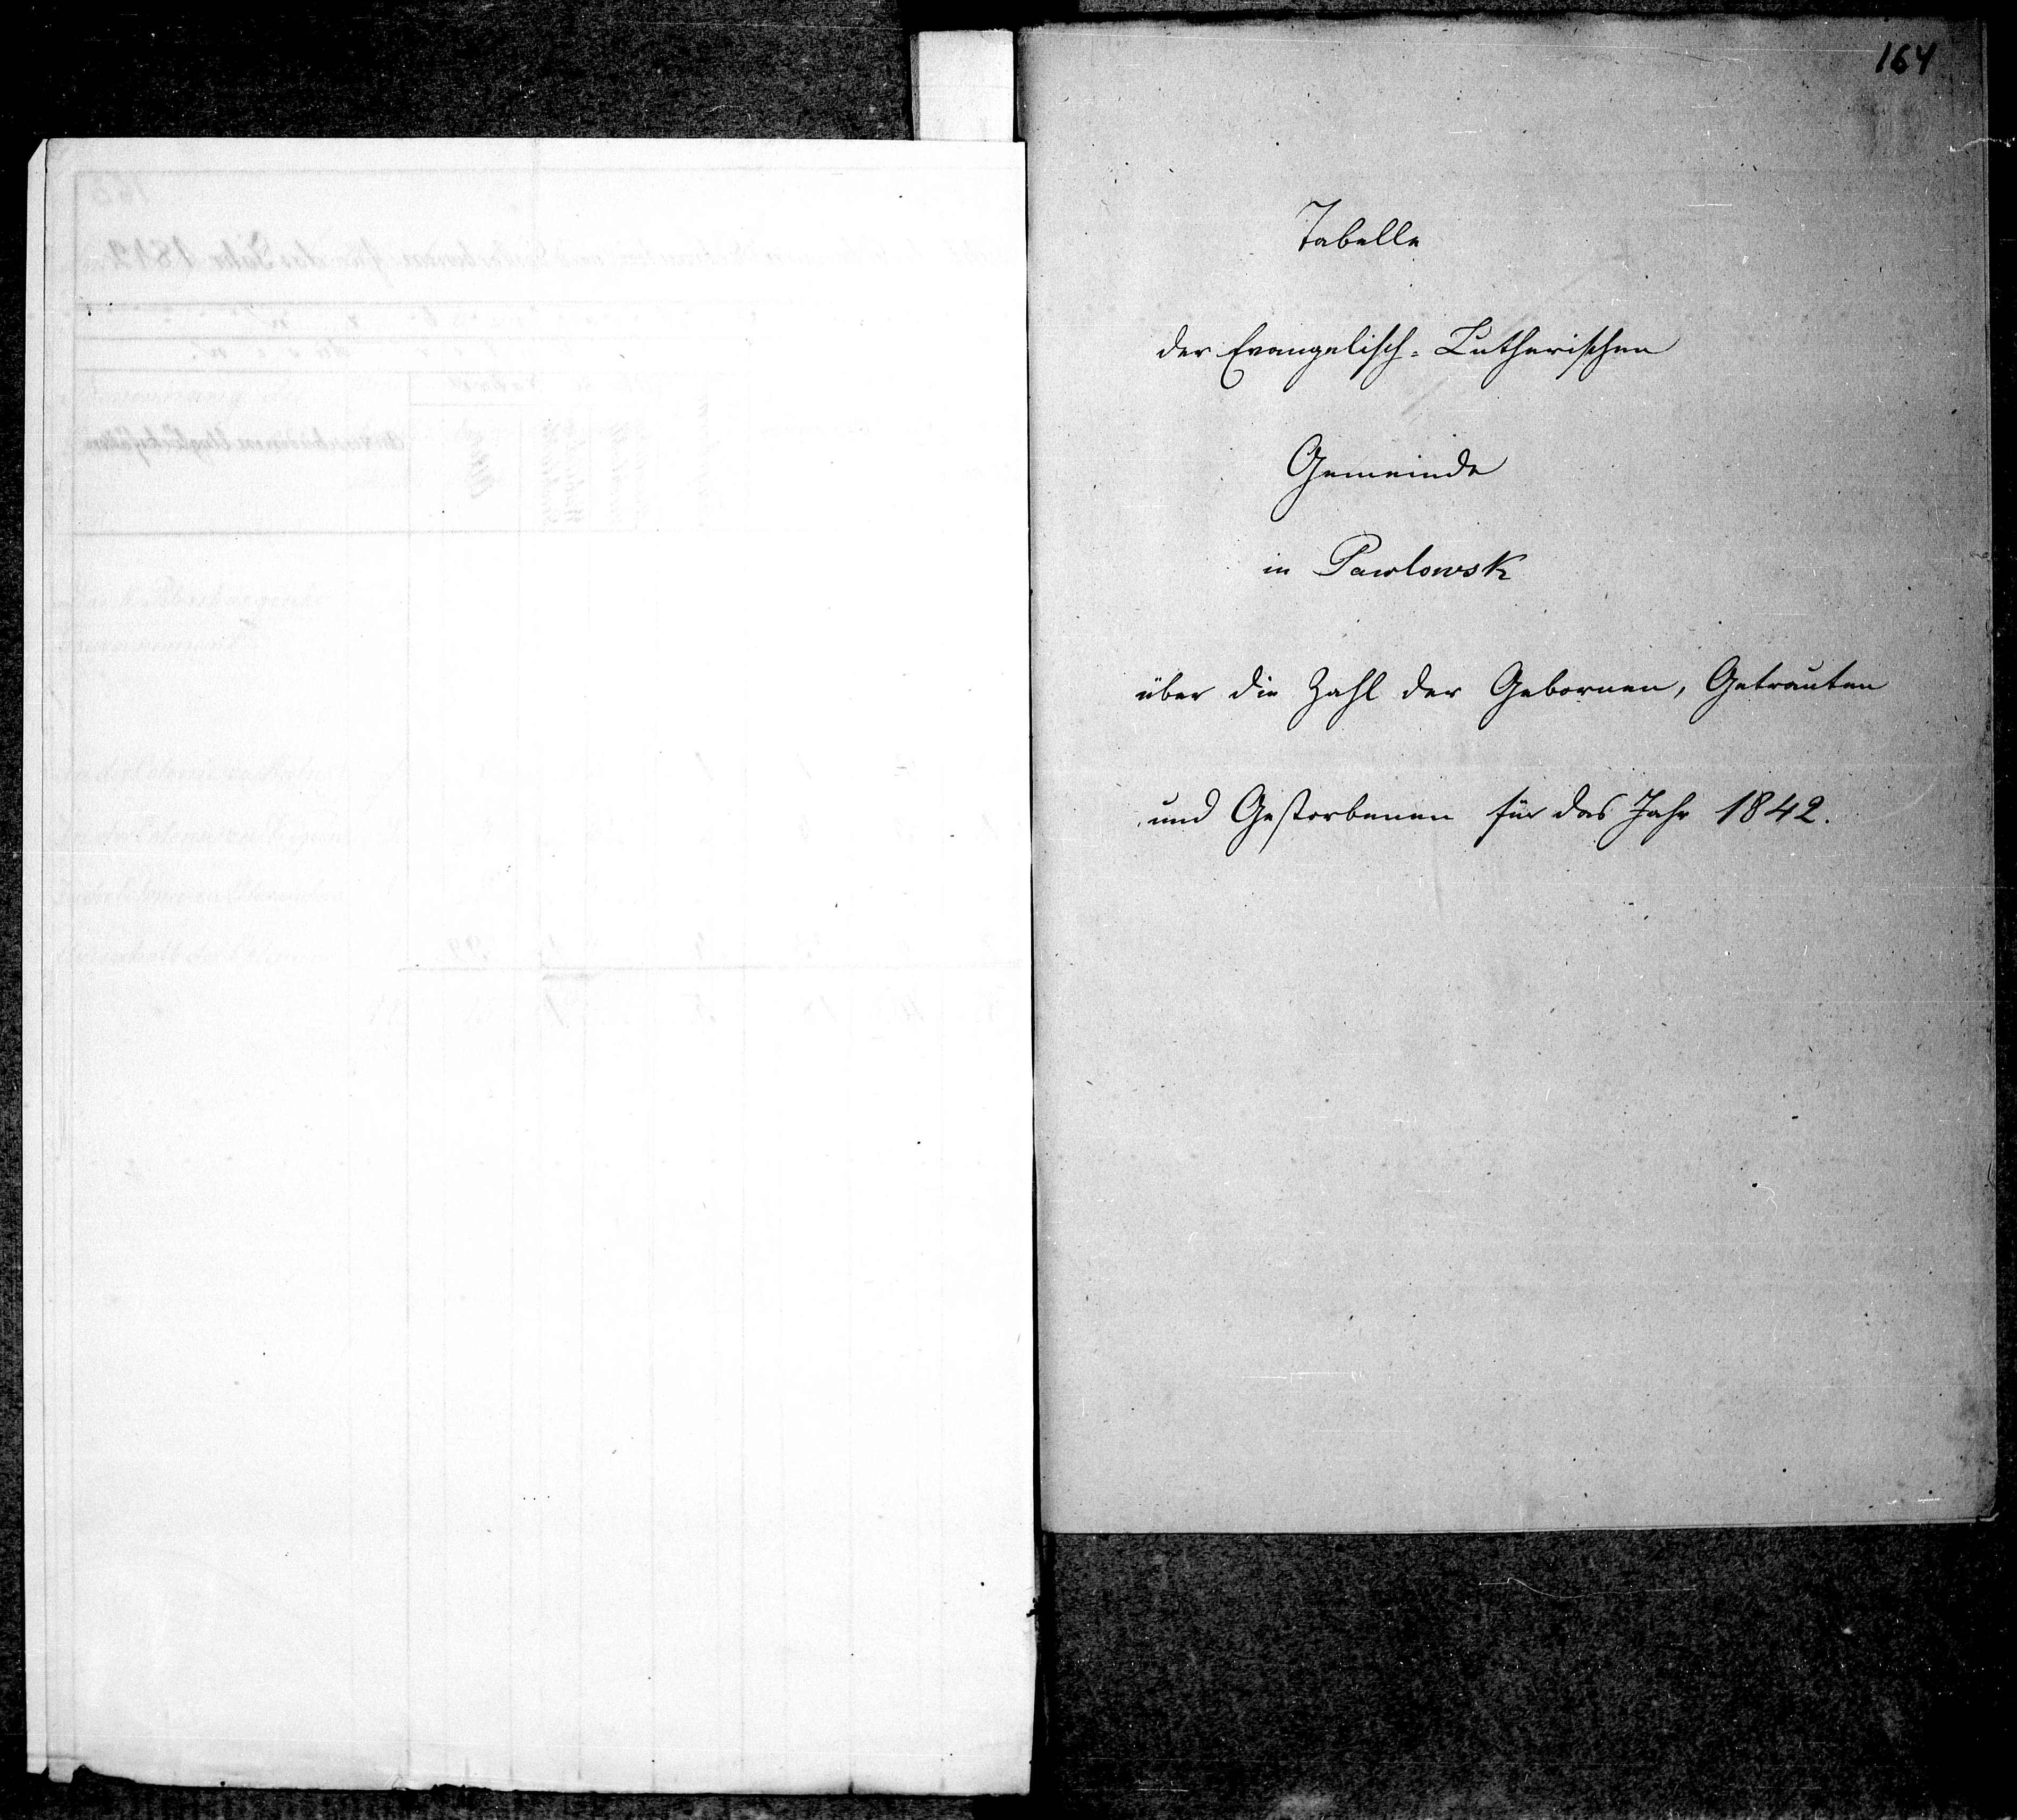 164
Tabelle
der Evangelisch-Lutherischen
Gemeinde
in Pawlowsk
über die Zahl der Gebornen, Getrauten
und Gestorbenen für das Jahr 1842.